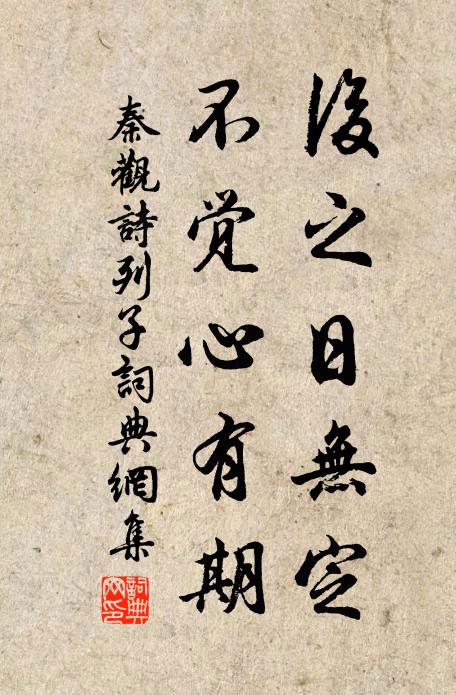 後之日無定
不覚心有期
秦觀詩列子詞典網集
詞典
网印